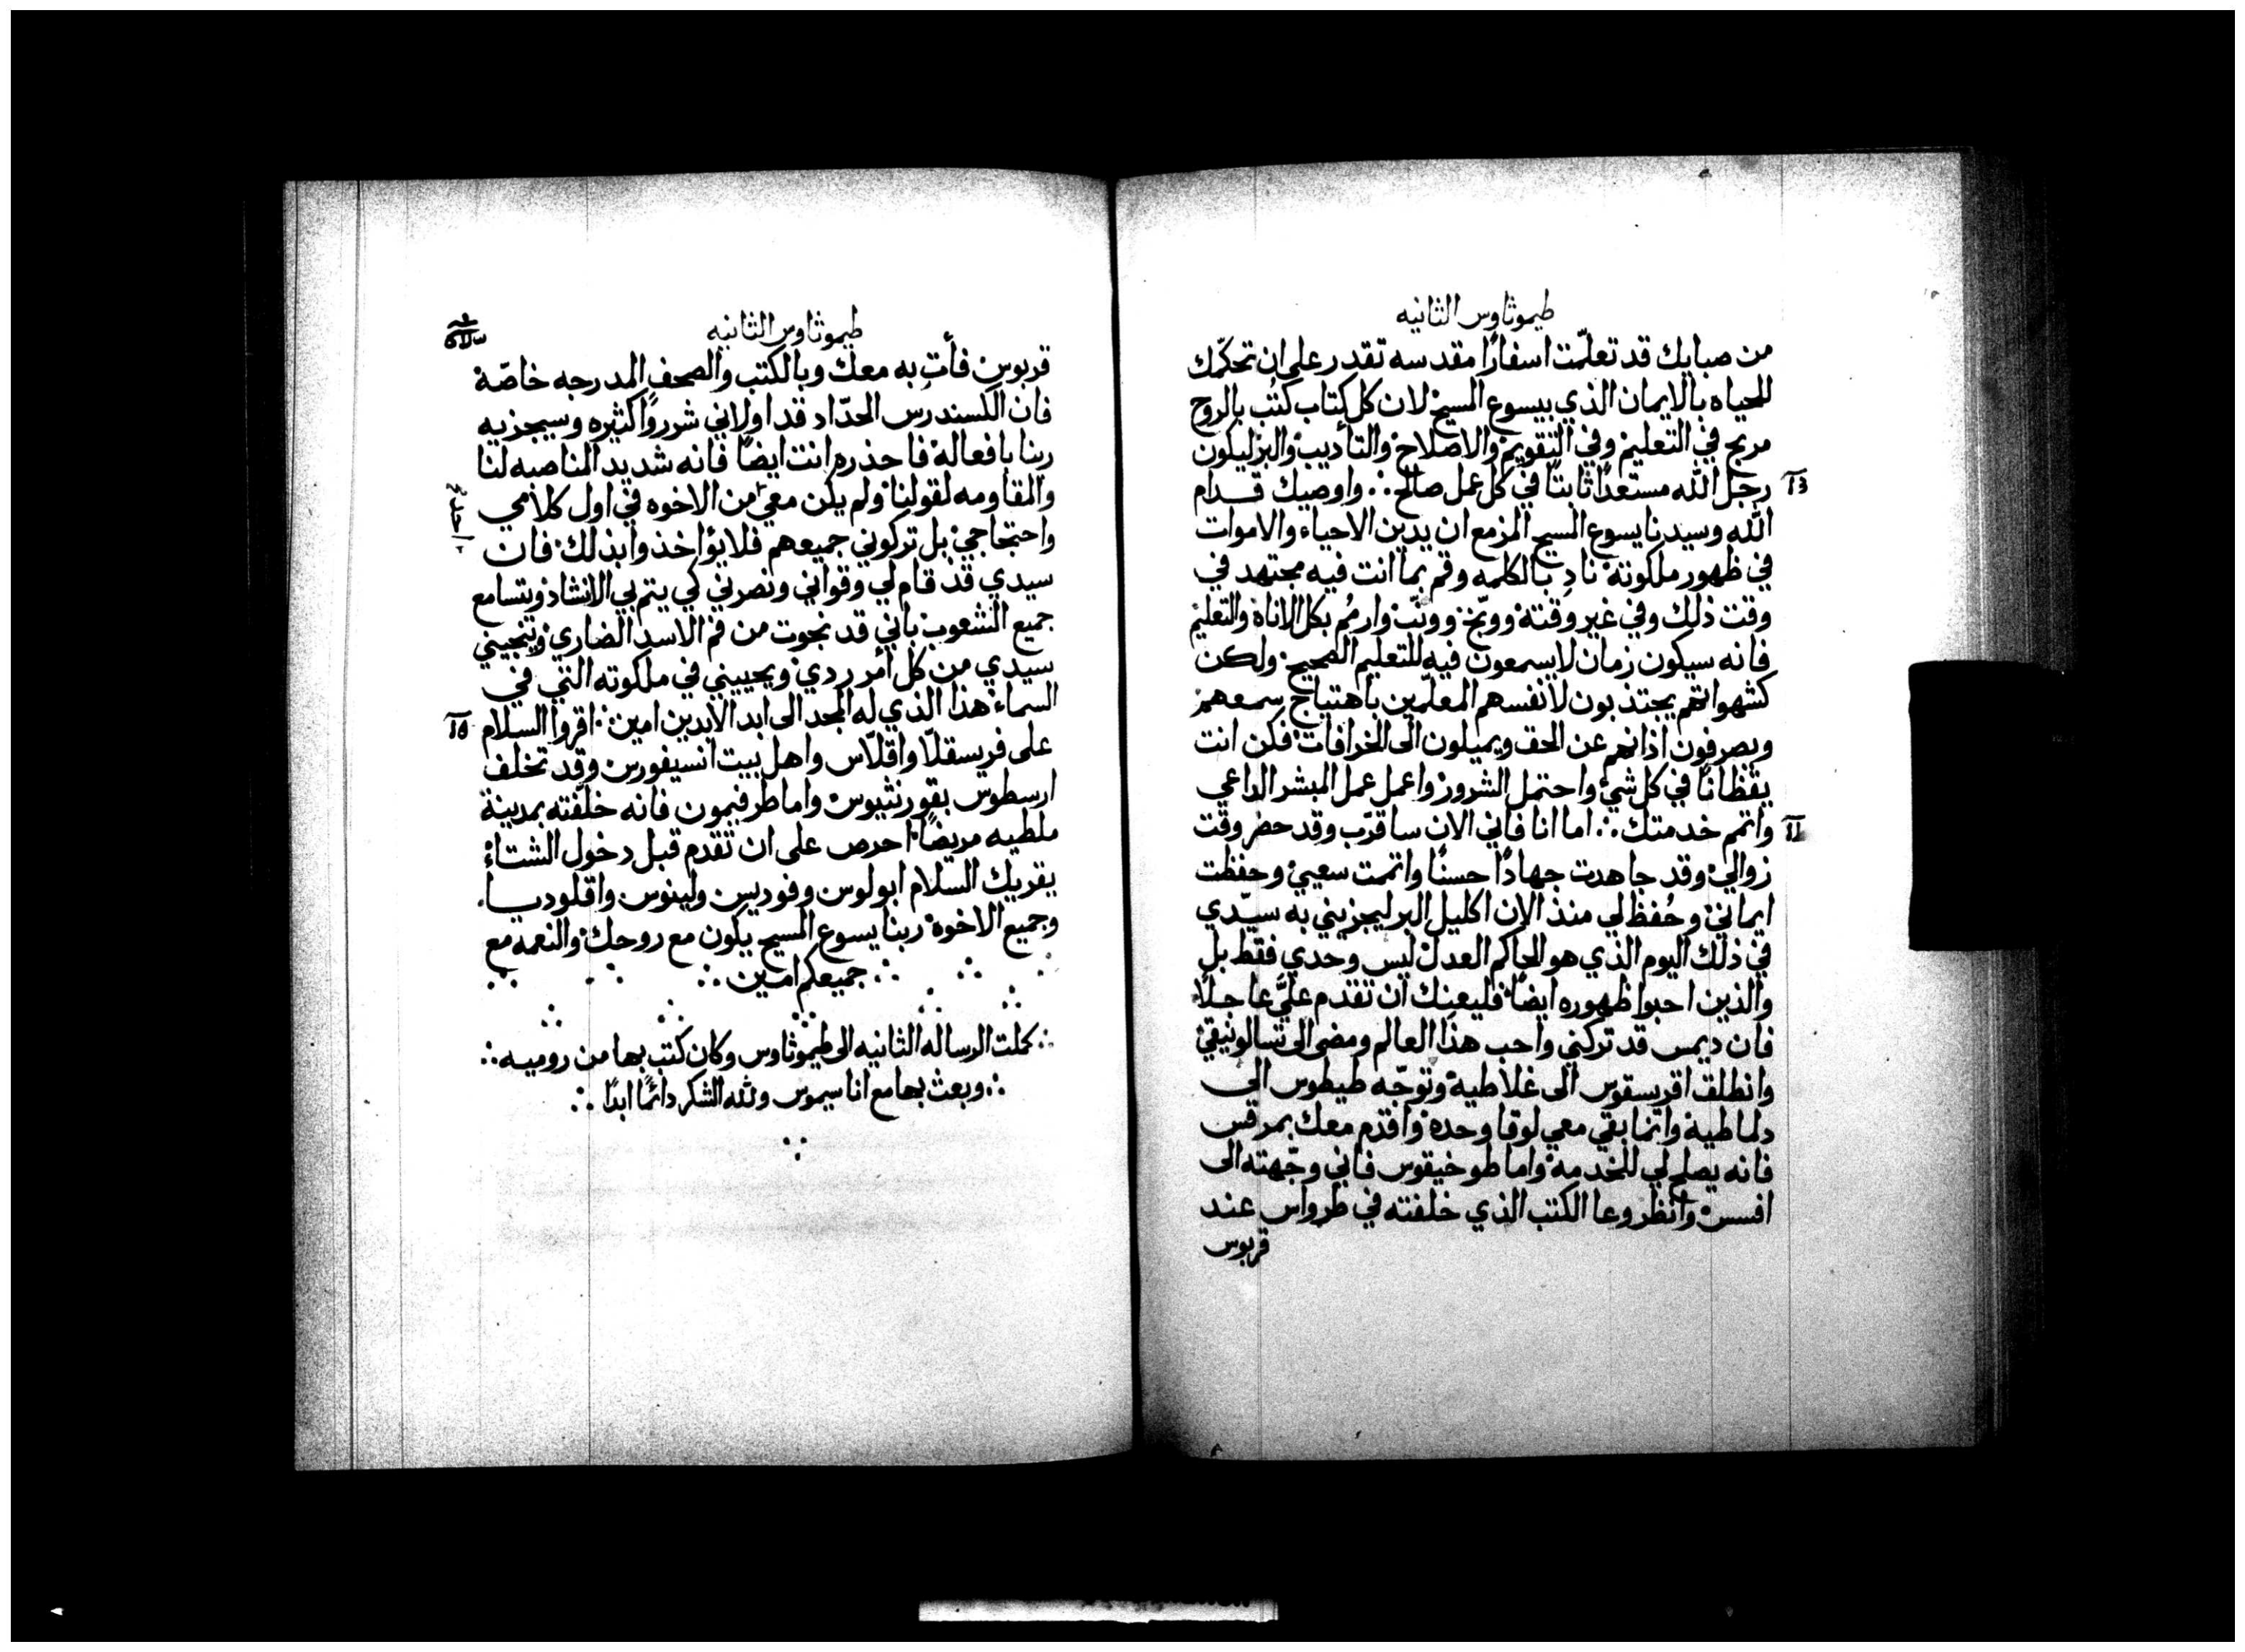 طيموثاوس الثانيه
من صبايك قد تعلّمت اسفارًا مقدسه تقدر على ان تحكّمك
للحياه بالايمان الذي بيسوع المسيح لان كل كتاب كُتُب بالروح
مربح في التعليم وفي التقويم والاصلاح والتأديب والبر ليكون
رجل الله مستعدًا ثابتًا في كل عمل صالح ∴ واوصيك قدام
الله وسيدنا يسوع المسيح المزمع ان يدين الاحياء والاموات
في ظهور ملكوته نادِ بالكلمه وقم بما انت فيه مجتهد في
وقت ذلك وفي غير وقته ووبّخ وونّب وارمُم بكل الاناه والتعليم
فانه سيكون زمان لا يسمعون فيه للتعليم الصحيح ولكن
كشهواتهم يجتذبون لانفسهم المعلّمين باهتياج سمعهم
ويصرفون اذانهم عن الحق ويميلون الى الخرافات فكن انت
يقظانًا في كل شي واحتمل الشرور واعمل عمل المبشر الداعي
واتمم خدمتك ∴ اما انا فاني الان ساقرّب وقد حضر وقت
زوالي وقد جاهدت جهادًا حسنًا واتممت سعيي وحفظت
ايماني وحُفظ لي منذ الان اكليل البر ليجزيني به سيّدي
في ذلك اليوم الذي هو الحاكم العدل ليس وحدي فقط بل
والذين احبوا ظهوره ايضًا فليعنك ان تقدم عليَّ عاجلًا
فان ديمس قد تركني واحب هذا العالم ومضى الى تسالونيقي
وانطلق اقريسقوس الى غلاطية وتوجّه طيطوس الى
دلماطية وانما بقي معي لوقا وحده واقدم معك بمرقس
فانه يصلح لي للخدمة واما طوخيقوس فاني وجّهته الى
افسس وانظر وعا الكتب الذي خلفته في طرواس عند
قربوس
طيموثاوس الثانيه
قربوس فأتِ به معك وبالكتب والصحف المدرجه خاصّة
فان الكسندرس الحدّاد قد اولاني شرورًا كثيره وسيجزيه
ربنا بافعاله فاحذره انت ايضًا فانه شديد المناصبه لنا
والمقاومه لقولنا ولم يكن معي من الاخوه في اول كلامي
واحتجاجي بل تركوني جميعهم فلا يؤاخذوا بذلك فان
سيدي قد قام لي وقواني ونصرني كي يتم بي الانشاد وتسامع
جميع الشعوب باني قد نجوت من فم الاسد الضاري وينجيني
سيدي من كل أمر ردي ويحييني في ملكوته التي في
السماء هذا الذي له المجد الى ابد الابدين امين ∴ اقروا السلام
على فريسقلّا واقلّاس واهل بيت انسيفورس وقد تخلف
ارسطوس بقورنثيوس واما طرفيمون فانه خلّفته بمدينة
ملطيه مريضًا احرص على ان تقدم قبل دخول الشتاء
يقريك السلام ابولوس وفوديس ولينوس واقلوديا
وجميع الاخوة ربنا يسوع المسيح يكون مع روحك والنعمه مع
∴ جميعكم امين ∴
∴ كملت الرساله الثانيه الى طيموثاوس وكان كتب بها من روميه ∴
∴ وبعث بها مع اناسيموس ولله الشكر دائمًا ابدًا ∴